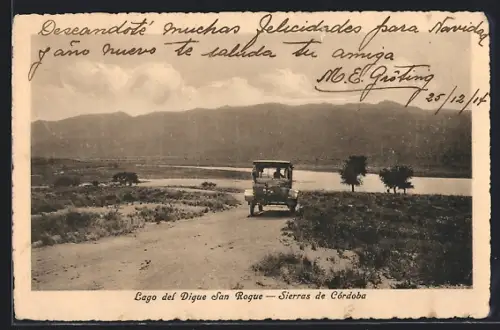 Deseandoté muchas felicidades para Navidad
y año nuevo te saluda tu amiga
M. E. Gröting
25/12/14
Lago del Dique San Roque — Sierras de Córdoba